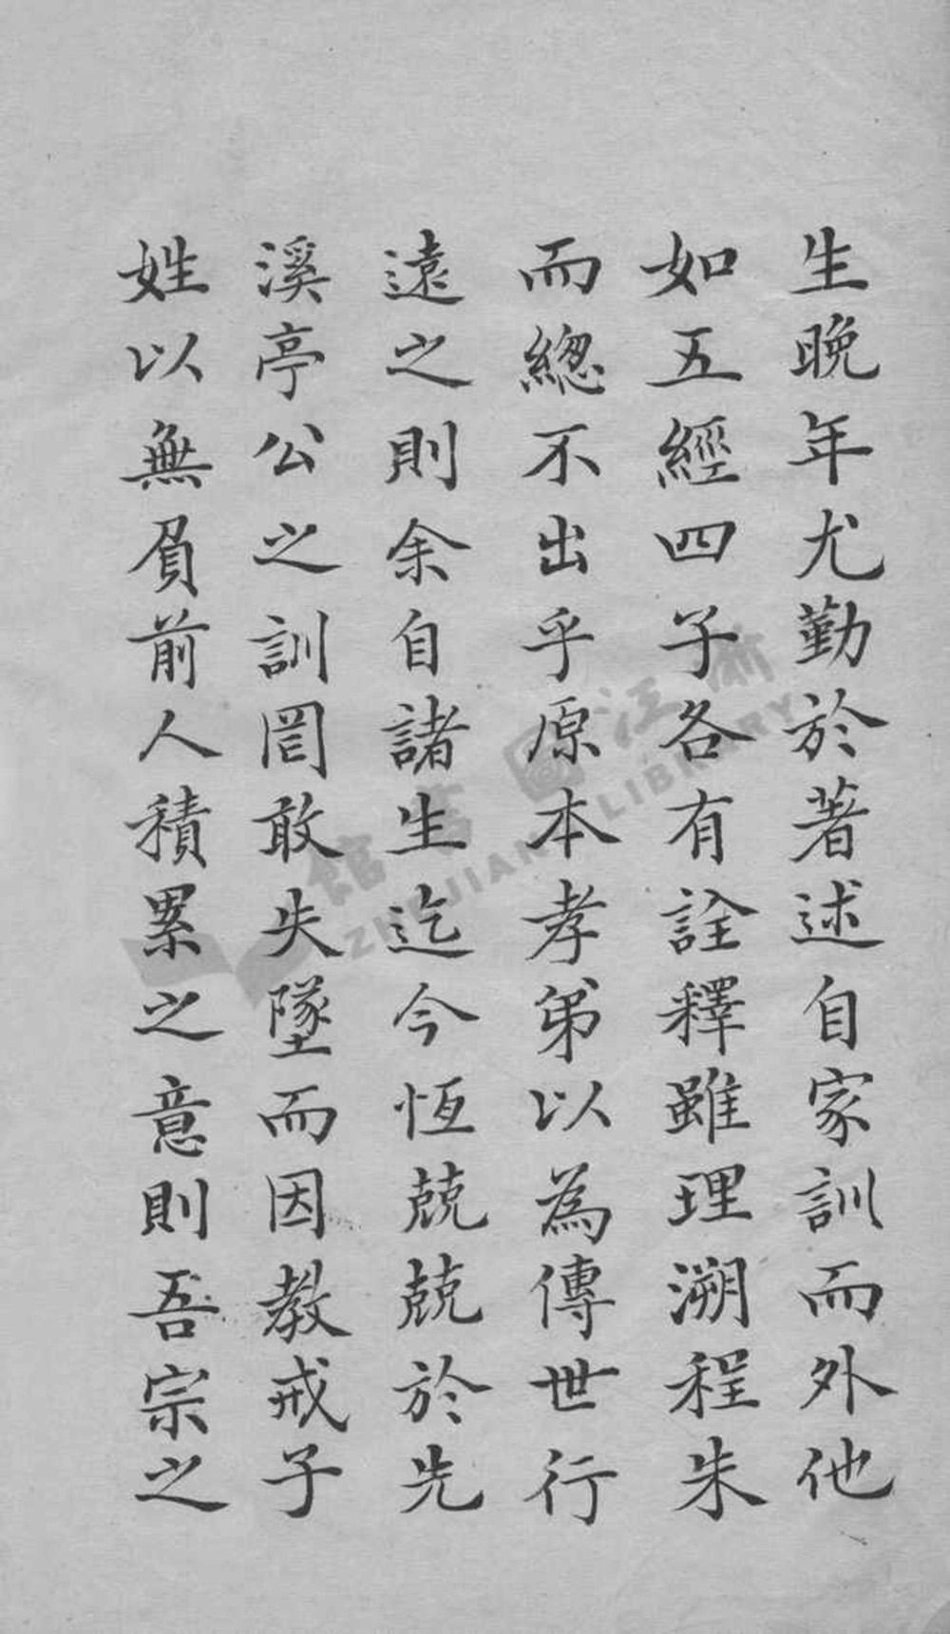 生晚年尤勤於著述自家訓而外他
如五經四子各有詮釋雖理溯程朱
而總不出乎原本孝弟以為傳世行
遠之則余自諸生迄今恆兢兢於先
溪亭公之訓罔敢失墜而因教戒子
姓以無負前人積累之意則吾宗之
浙江圖書館
ZHEJIANG LIBRARY